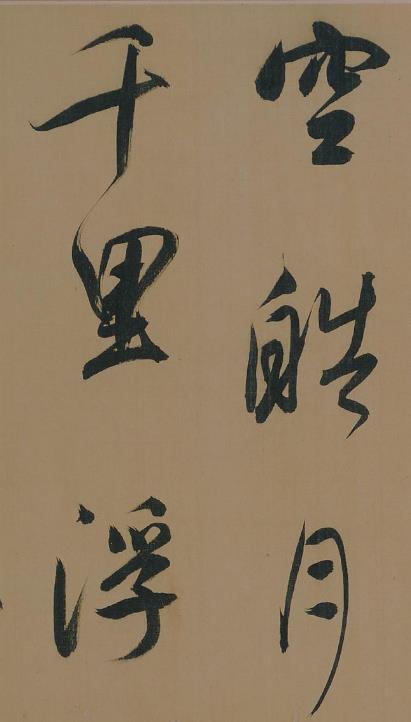 空皓月
千里浮